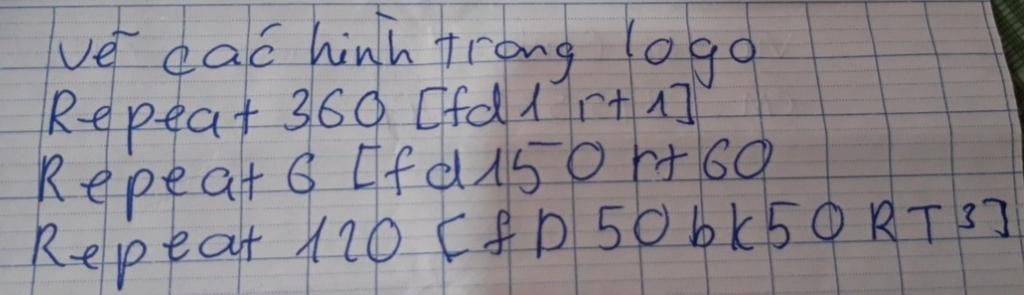 vẽ các hình trong logo
Repeat 360 [fd 1 rt 1]
Repeat 6 [fd 150 rt 60
Repeat 120 [fD 50 bk 50 RT 3]